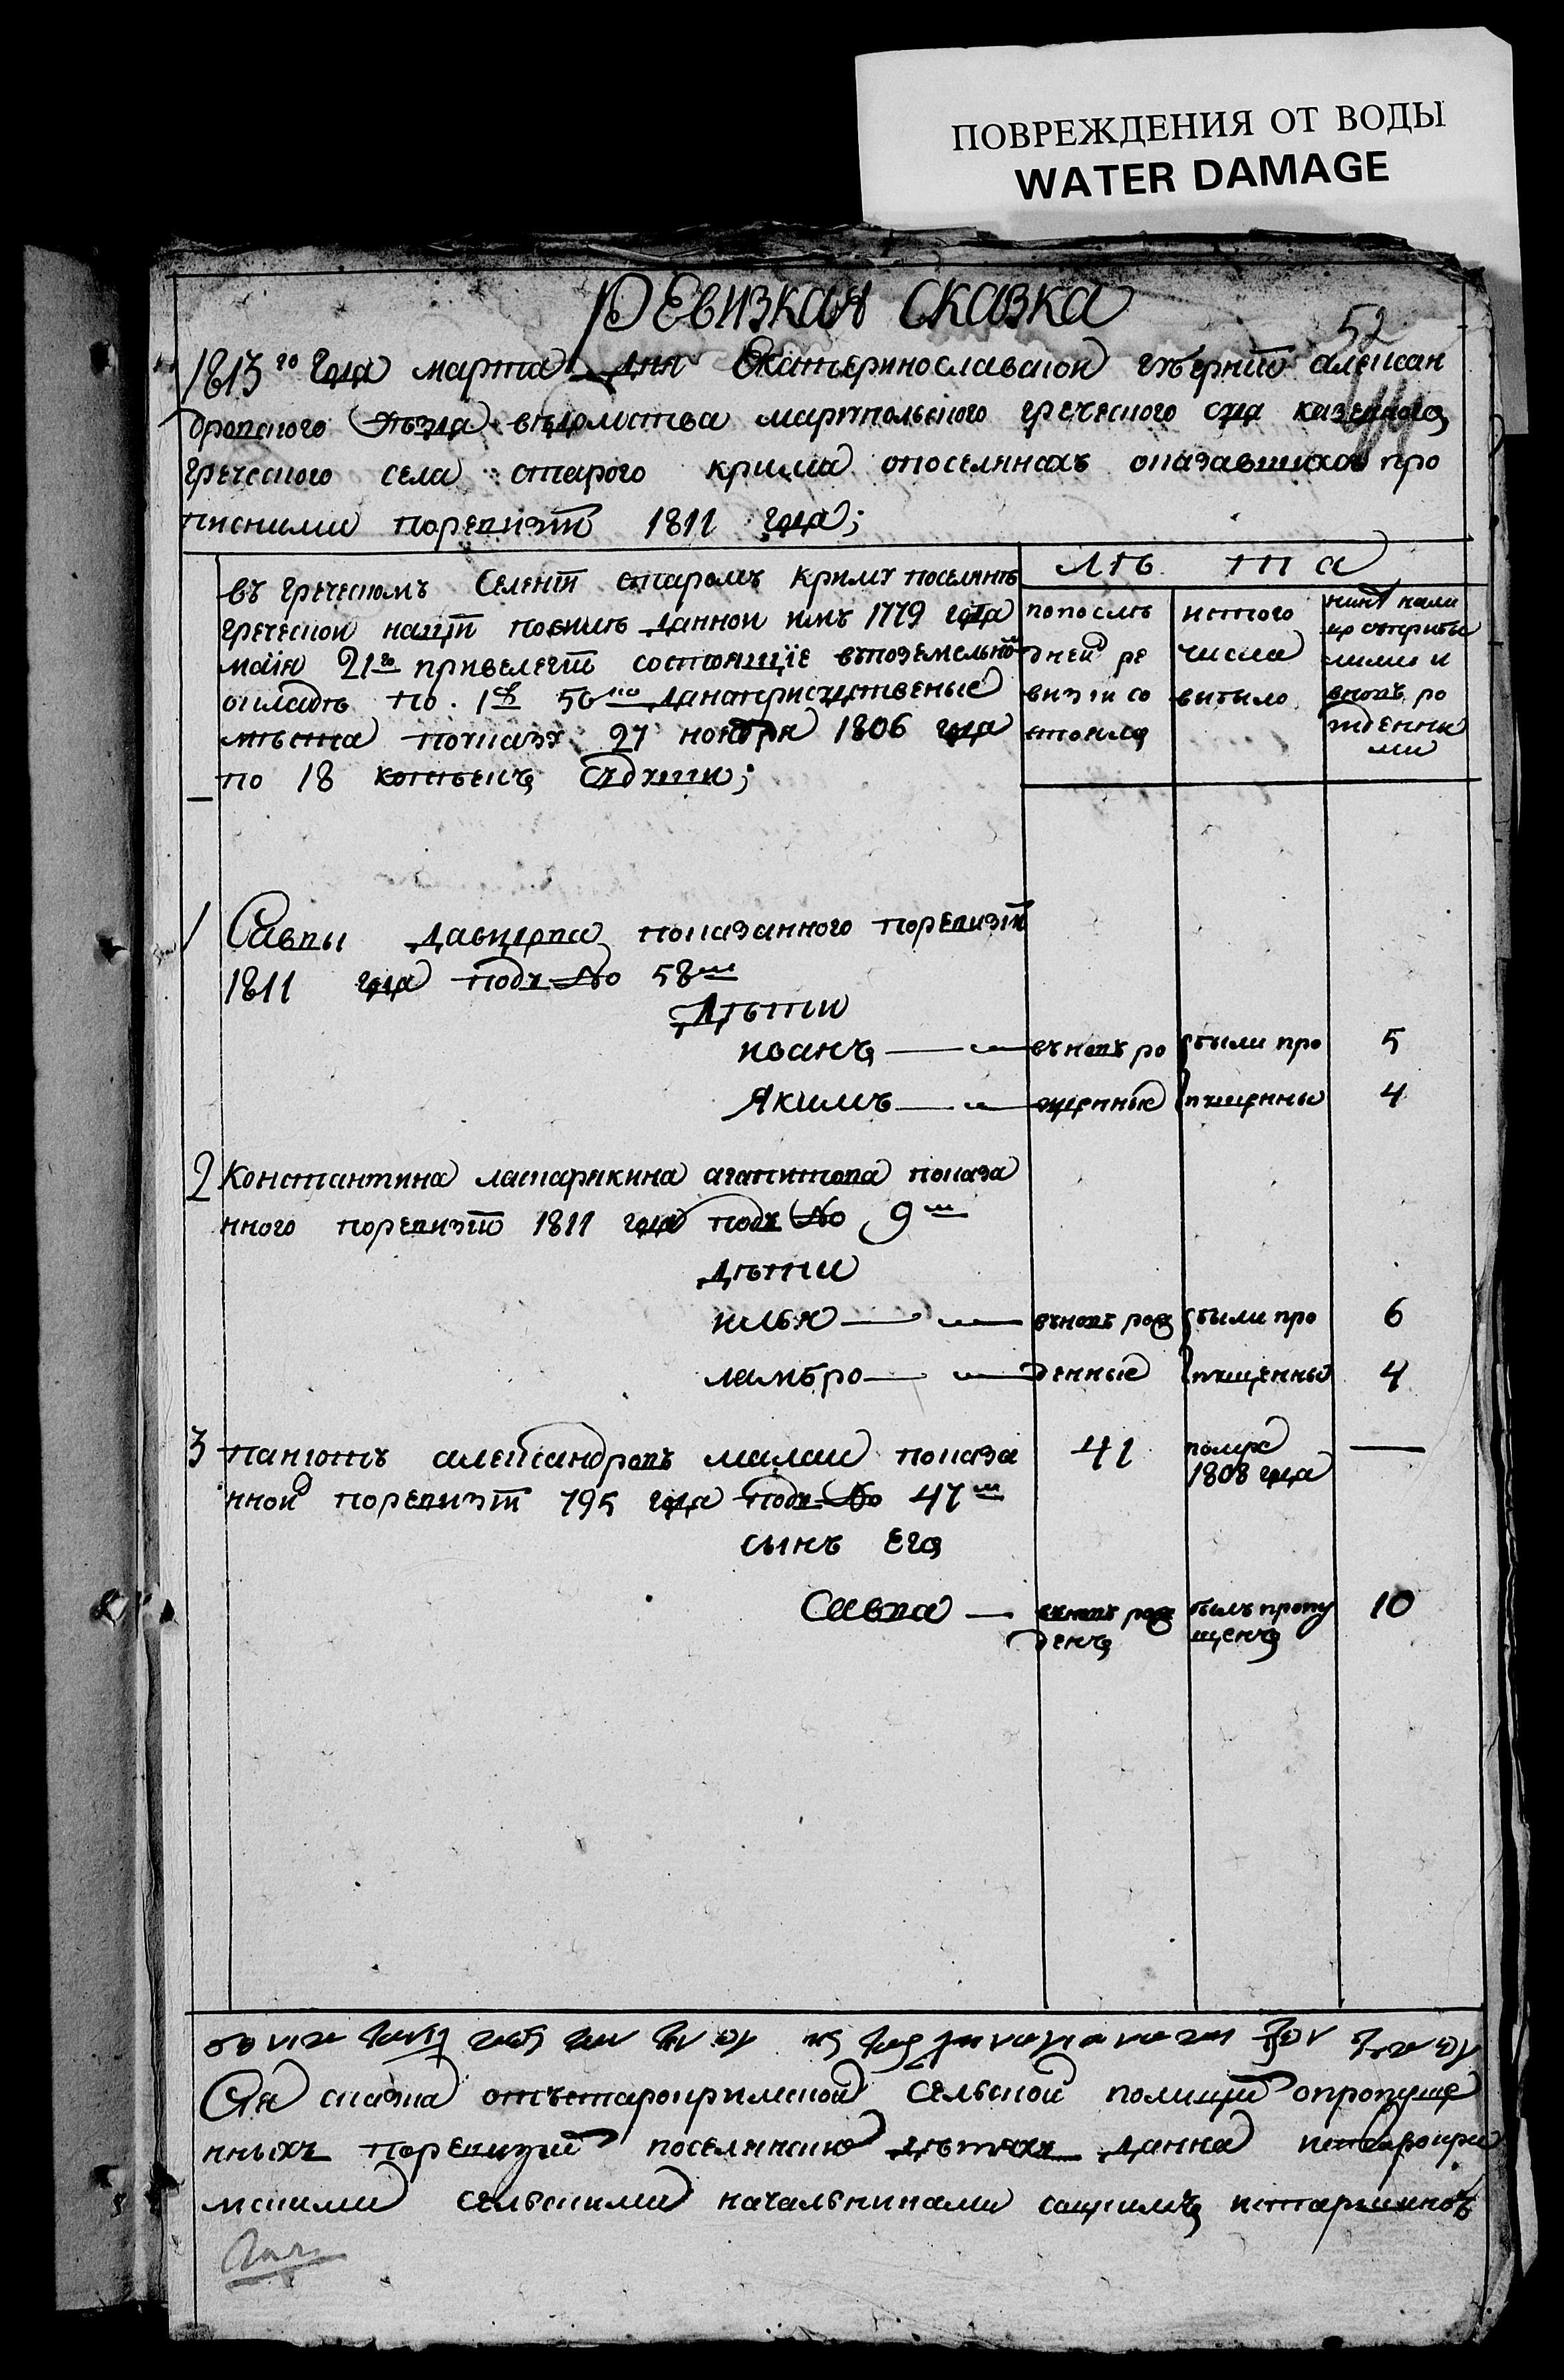 ПОВРЕЖДЕНИЯ ОТ ВОДЫ
WATER DAMAGE
Ревизкая сказка
52
1813го года марта дня Екатеринославской губернiи алексан
дровского уѣзда вѣдомства мариупольского греческого суда казенного
греческого села старого крима опоселянахъ оказавшихся про
писними поревизiи 1811 года;
въ греческомъ селенiи старомъ криму поселянъ
греческой нацiи повсилѣ данной имъ 1779 года
маiя 21го привелегiи состоящiе впоземельной
окладѣ по 1р 50 данаприсудственые
мѣста поуказу 27 ноября 1806 года
по 18 копѣекъ сдуши;
лѣ та
попослѣ
дней ре
визiи со
стояло
истого
числа
выбыло
нинѣ нали
цо
лими и
вновъ ро
жденни
ми
1 Саввы давидова показанного поревизiи
1811 года подъ No 58м
Дѣти
иванъ — въновъ ро были про 5
Якимъ — жденные пущенны 4
2 Константина асарикина агапитова показа
нного поревизiи 1811 года подъ No 9м
дѣти
илья — въновъ рож были про 6
ламбро — денные пущенны 4
3 панютъ александровъ малаи показа 41 —
нной поревизiи 795 года подъ No 47м 1808 года
сынъ Его
Савва — въновъ рож былъ пропу 10
денъ щенъ
Сiя сказка отъстарокримской сельской полицiи опропуще
нныхъ поревизiи поселянскихъ дѣтяхъ данна истарокри
мскими сельскими начальниками